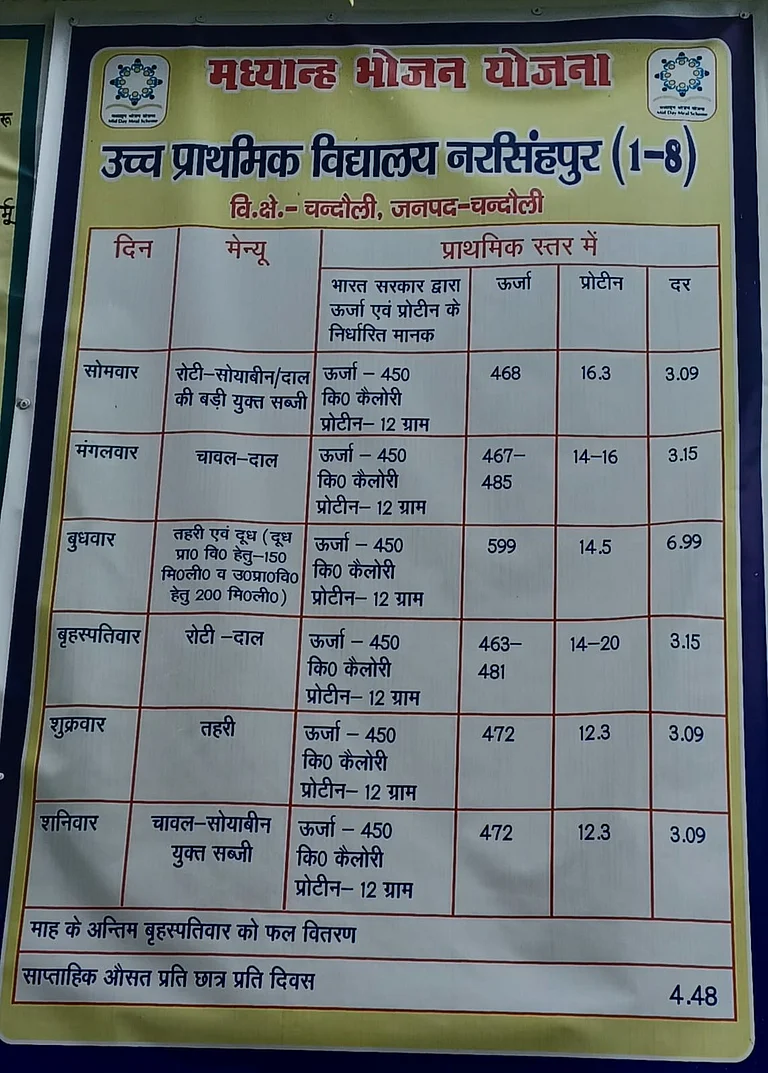 मध्यान्ह भोजन योजना
Mid Day Meal Scheme
Mid Day Meal Scheme
उच्च प्राथमिक विद्यालय नरसिंहपुर (1-8)
वि.क्षे.- चन्दौली, जनपद-चन्दौली
दिन मेन्यू प्राथमिक स्तर में
भारत सरकार द्वारा ऊर्जा प्रोटीन दर
ऊर्जा एवं प्रोटीन के
निर्धारित मानक
सोमवार रोटी-सोयाबीन/दाल ऊर्जा – 450 468 16.3 3.09
की बड़ी युक्त सब्जी कि0 कैलोरी
प्रोटीन– 12 ग्राम
मंगलवार चावल-दाल ऊर्जा – 450 467– 14–16 3.15
कि0 कैलोरी 485
प्रोटीन– 12 ग्राम
बुधवार तहरी एवं दूध (दूध ऊर्जा – 450 599 14.5 6.99
प्रा0 वि0 हेतु–150 कि0 कैलोरी
मि0ली0 व उ0प्रा0वि0 प्रोटीन– 12 ग्राम
हेतु 200 मि0ली0)
बृहस्पतिवार रोटी –दाल ऊर्जा – 450 463– 14–20 3.15
कि0 कैलोरी 481
प्रोटीन– 12 ग्राम
शुक्रवार तहरी ऊर्जा – 450 472 12.3 3.09
कि0 कैलोरी
प्रोटीन– 12 ग्राम
शनिवार चावल–सोयाबीन ऊर्जा – 450 472 12.3 3.09
युक्त सब्जी कि0 कैलोरी
प्रोटीन– 12 ग्राम
माह के अन्तिम बृहस्पतिवार को फल वितरण
साप्ताहिक औसत प्रति छात्र प्रति दिवस 4.48